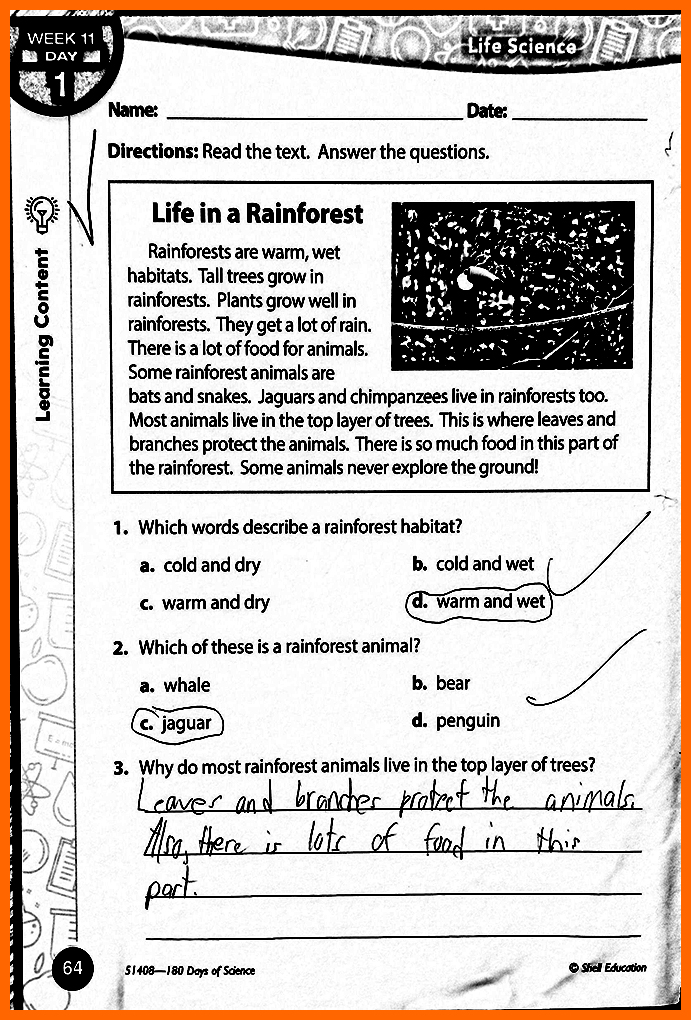 WEEK 11
DAY
1
Life Science
Name: Date:
Directions: Read the text. Answer the questions.
Learning Content
Life in a Rainforest
Rainforests are warm, wet
habitats. Tall trees grow in
rainforests. Plants grow well in
rainforests. They get a lot of rain.
There is a lot of food for animals.
Some rainforest animals are
bats and snakes. Jaguars and chimpanzees live in rainforests too.
Most animals live in the top layer of trees. This is where leaves and
branches protect the animals. There is so much food in this part of
the rainforest. Some animals never explore the ground!
1. Which words describe a rainforest habitat?
a. cold and dry b. cold and wet
c. warm and dry d. warm and wet
2. Which of these is a rainforest animal?
a. whale b. bear
c. jaguar d. penguin
3. Why do most rainforest animals live in the top layer of trees?
Leaves and branches protect the animals.
Also, there is lots of food in this
part.
64 51408—180 Days of Science © Shell Education